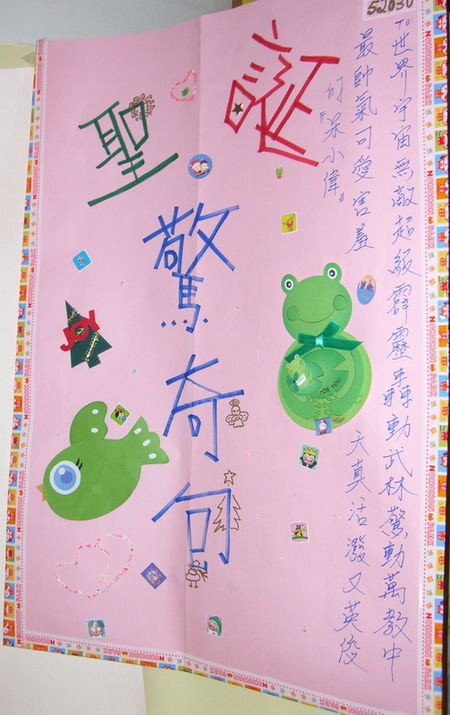 52030
To:世界宇宙無敵超級霹靂轟動武林驚動萬教中
最帥氣可愛害羞 天真活潑又英俊
的『呆小偉』
聖誕
驚奇句
JOY
FOR YOU